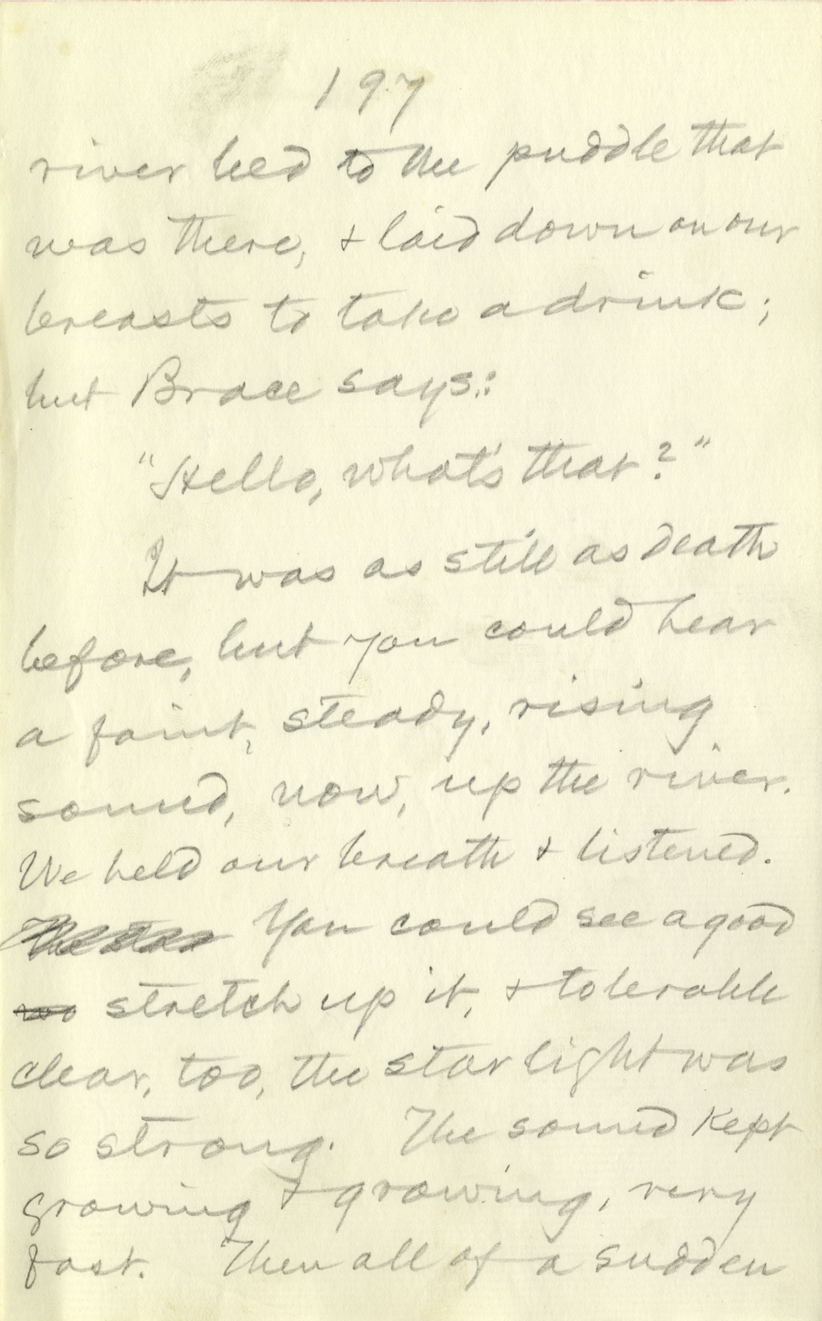 197
river bed to the puddle that
was there, & laid down on our
breasts to take a drink;
but Brace says:
"Hello, what's that?"
It was as still as death
before, but you could hear
a faint, steady, rising
sound, now, up the river.
We held our breath & listened.
You could see a good
stretch up it, & tolerable
clear, too, the star light was
so strong. The sound kept
growing & growing, very
fast. Then all of a sudden